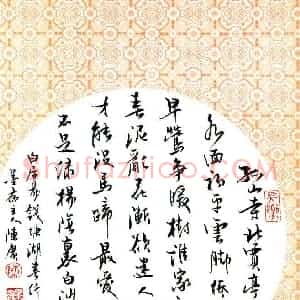 孤山寺北賈亭
水面初平雲脚低
早鶯争暖樹誰家
春泥亂花漸欲迷人
才能没馬蹄最愛
不足緑楊陰裏白沙
白居易錢塘湖春行
主人陳
Shufaziliao.com